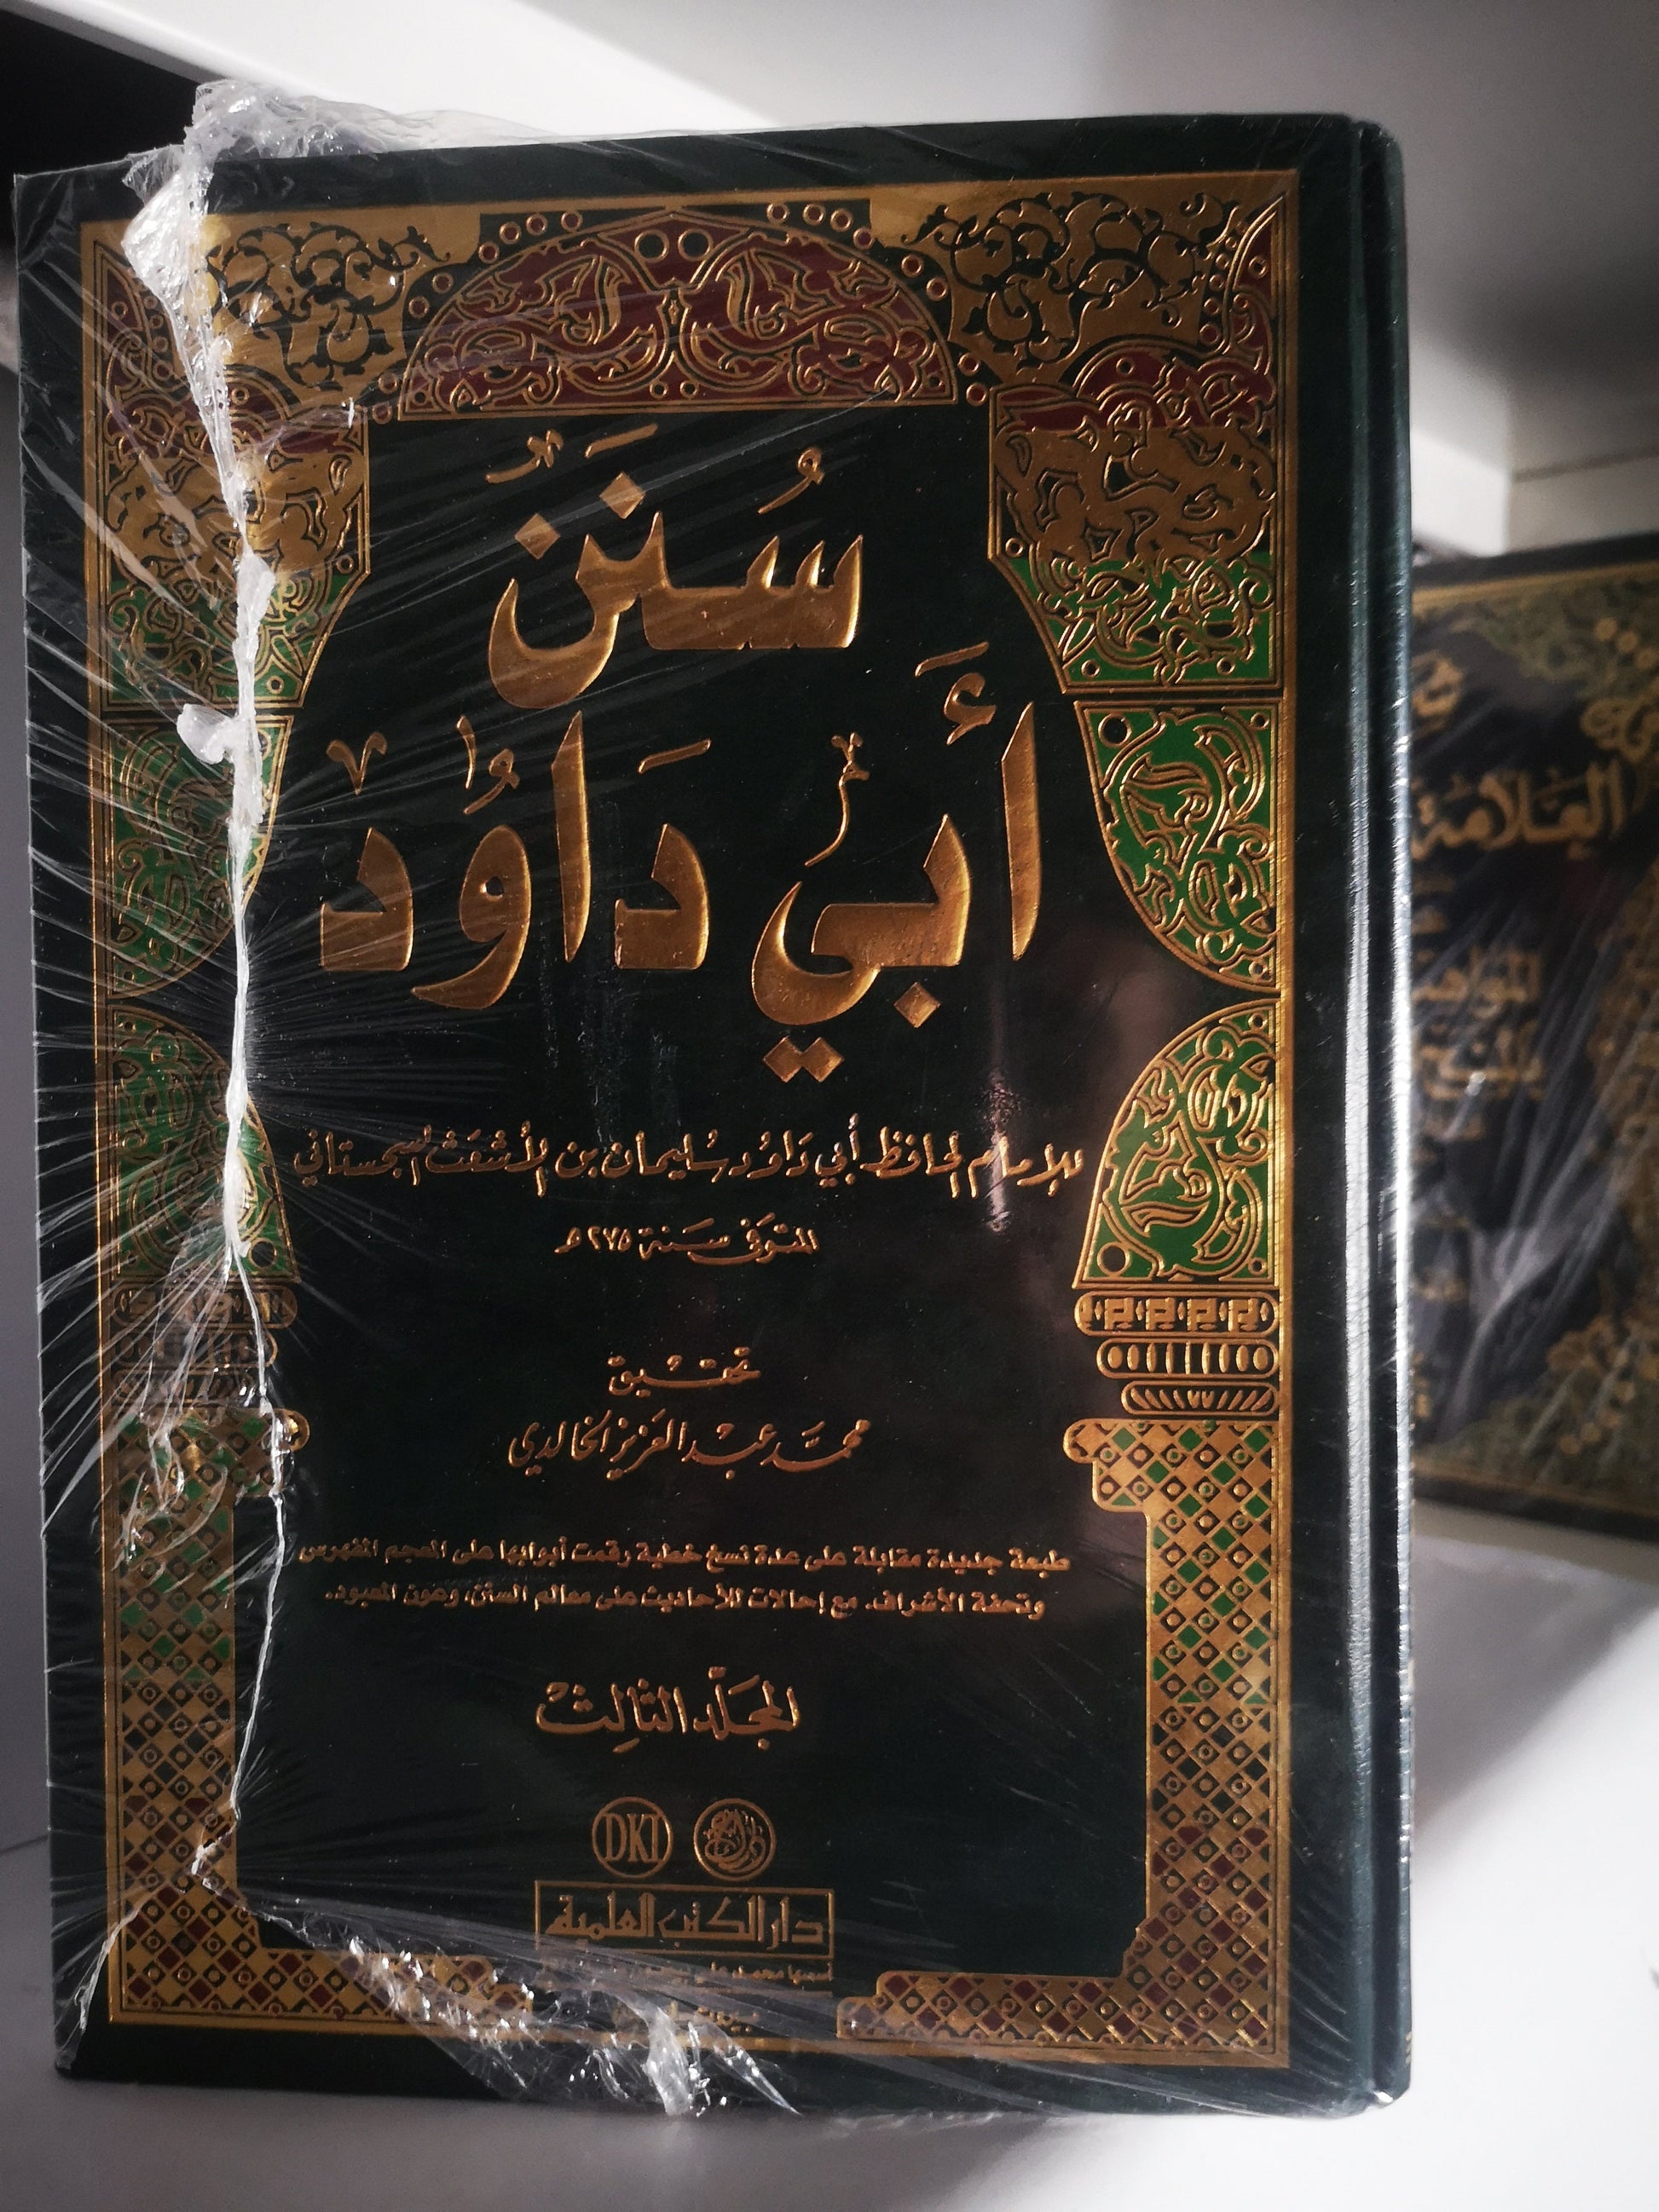 سُنَنُ
أَبِي دَاوُدَ
للإمام الحافظ أبي دَاوُد سُليمان بن الأشعَث السجستاني
المتوفى سَنة ٢٧٥ هـ
تحقيق
محمَّد عبْد العَزيز الخالدي
طبعة جديدة مقابلة على عدة نسخ خطية رقمت أبوابها على المعجم المفهرس
وتحفة الأشراف. مع إحالات للأحاديث على معالم السنن، وعون المعبود.
المجَلّد الثالِث
DKI
دار الكتب العلمية
أسسها محمد علي
بيروت
العلامة